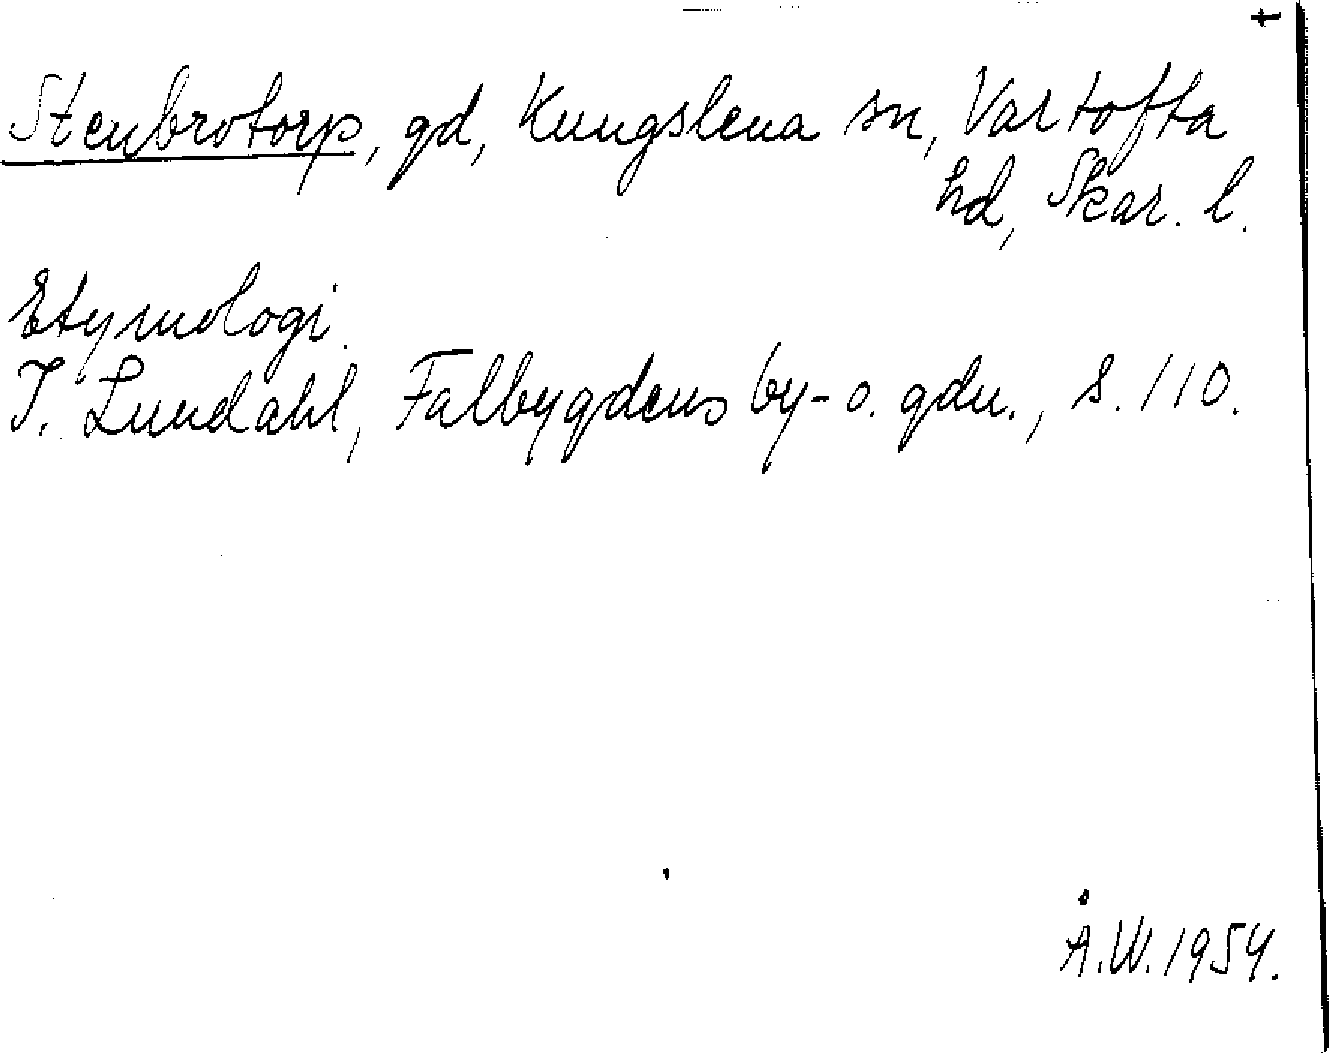 Stenbrotorp, gd, Kungslena sn, Vartofta
hd, Skar. l.
Etymologi.
I. Lundahl, Falbygdens by- o. gdn., s. 110.
Å.W. 1954.